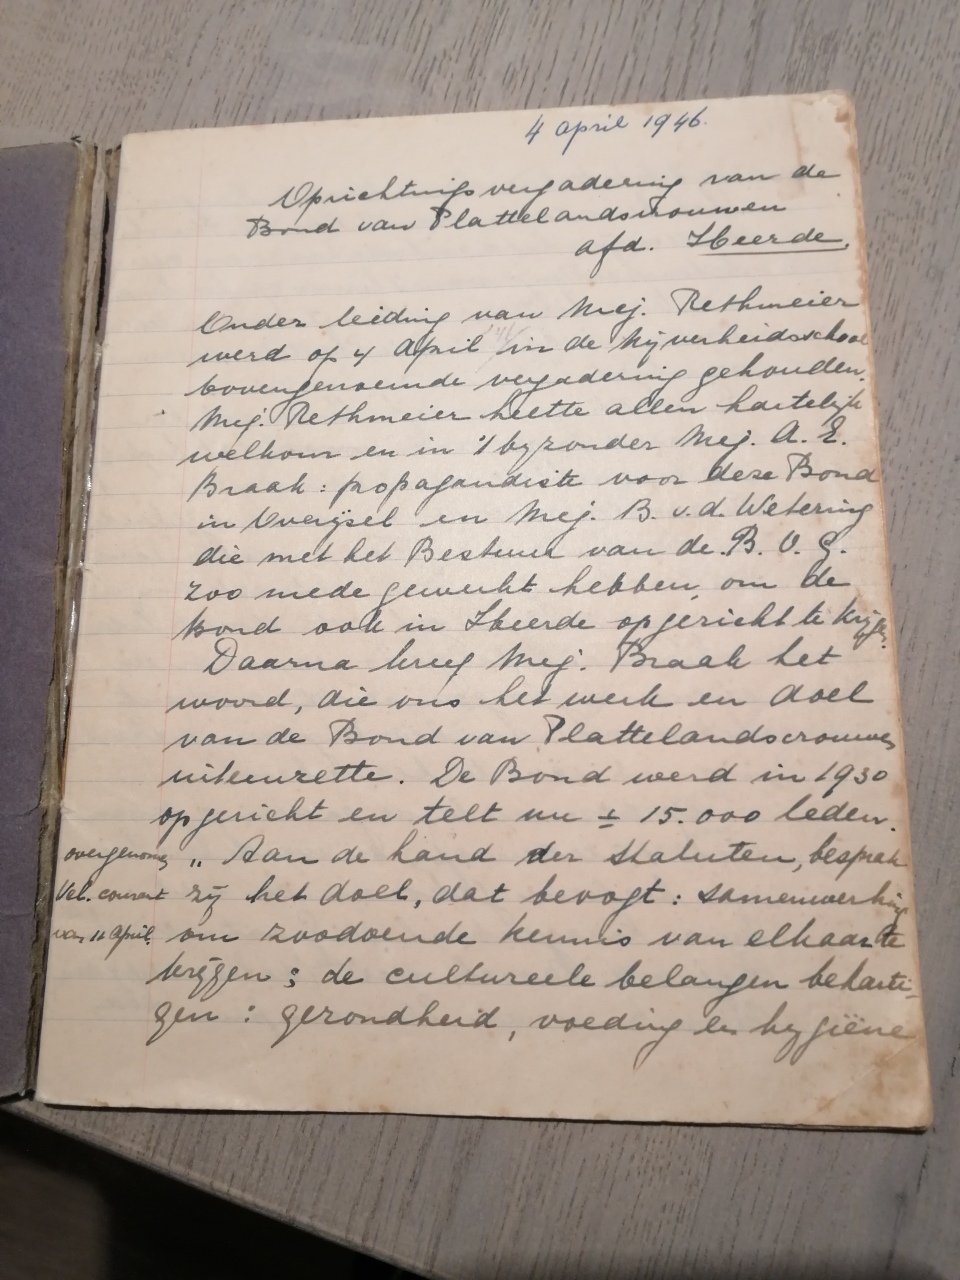 4 april 1946.
Oprichtingsvergadering van de
Bond van Plattelandsvrouwen
afd. Heerde.
Onder leiding van Mej. Rethmeier
werd op 4 April in de Nijverheidsschool
bovengenoemde vergadering gehouden.
Mej. Rethmeier heette allen hartelijk
welkom en in 't byzonder Mej. A. E.
Braak: propagandiste voor deze Bond
in Overijsel en Mej. B. v. d. Wetering
die met het Bestuur van de B. V. G.
zoo mede gewerkt hebben, om de
bond ook in Heerde opgericht te krijgen.
Daarna kreeg Mej. Braak het
woord, die ons het werk en doel
van de Bond van Plattelandsvrouwen
uiteenzette. De Bond werd in 1930
opgericht en telt nu ± 15.000 leden.
overgenomen „ Aan de hand der statuten, besprak
Vel. courant zij het doel, dat beoogt: samenwerking
van 11 april. om zoodoende kennis van elkaar te
krijgen; de cultureele belangen beharti-
gen: gezondheid, voeding en hygiëne